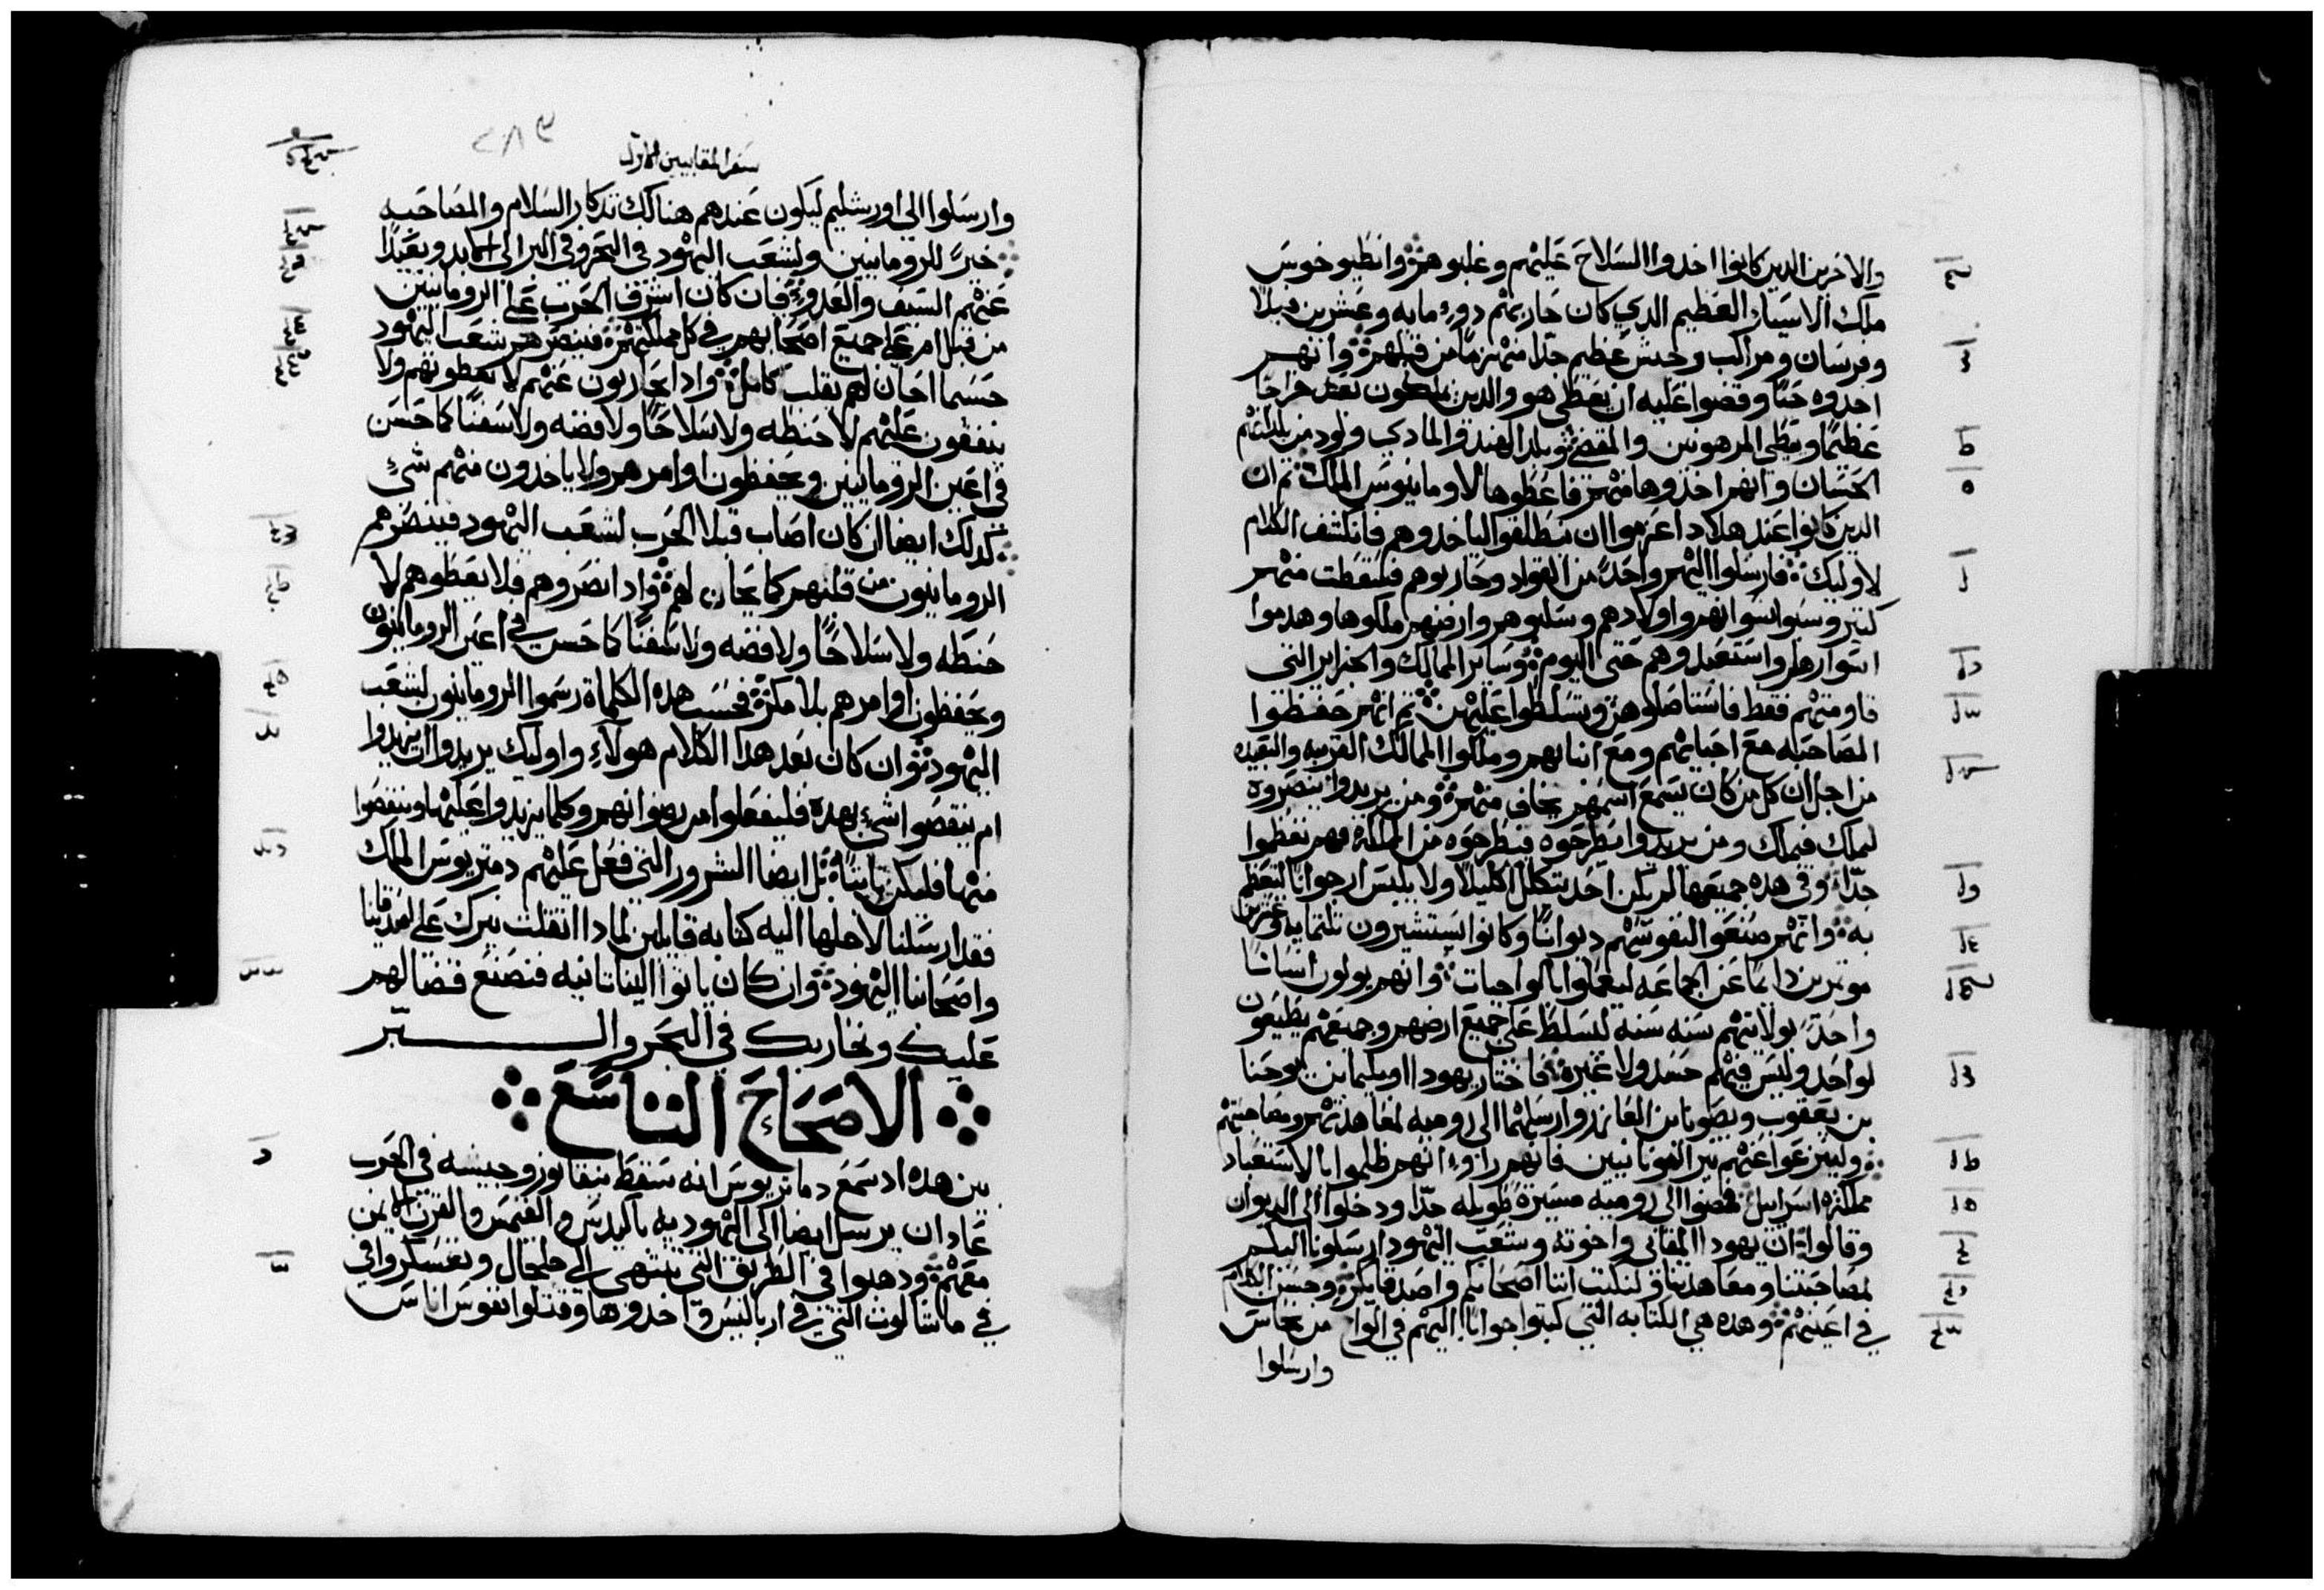 والاخرين الدين كانوا اخدوا السلاح عليهم وغلبوهم وانطيوخوس
ملك الاسياد العظيم الدي كان حاربهم دو مايه وعشرين فيلا
وفرسان ومراكب وجيش عظيم جدا منهزما من قبلهم وانهم
اخدوه حيا وقضوا عليه ان يعطي هو والدين يملكون بعده خراجا
عظيما ويعطي المرهونين والمقضي وبلد الهند والمادي ولود من بلدانهم
الحسان وانهم اخدوها منهم فاعطوها لاومانيوس الملك ثم ان
الدين كانوا عند هلاد اعزموا ان ينطلقوا لياخدوهم فانكشف الكلام
لاوليك فارسلوا اليهم واحدا من القواد وحاربوهم فسقطت منهم
كتير وسبوا نسوانهم واولادهم وسلبوهم وارضهم ملكوها وهدموا
اسوارهم واستعبدوهم حتى اليوم وساير الممالك والجزاير التي
قاومتهم فقط فاستاصلوهن وتسلطوا عليهن ثم انهم حفظوا
المصاحبه مع احبايهم ومع انسابهم وملكوا الممالك القريبه والبعيده
من اجل ان كل من كان يسمع اسمهم يخاف منهم ومن يريدوا ينصروه
ليملك فيملك ومن يريدوا يطرحوه فيطرحوه من المملكه فهم تعظموا
جدا وفي هده جميعها لم يكن احد يتكلل اكليلا ولا يلبس ارجوانا ليتعظم
به وانهم صنعوا لنفوسهم ديوانا وكانوا يستشيرون تلتمايه وعشرين
موتمرين دايما عن الجماعه ليعملوا بالواجبات وانهم يولون انسانا
واحدا بولايتهم سنه سنه ليسلط على جميع ارضهم وجميعهم يطيعون
لواحد وليس فيهم حسد ولا غيره فاختار يهودا اوبليما بن يوحنا
بن يعقوب ويصونا بن العازر وارسلهما الى روميه لمعاهدتهم ومصاحبتهم
ولينزعوا عنهم نير اليونانيين فانهم راوا انهم ظلموا بالاستعباد
مملكة اسراييل فمضوا الى روميه مسيرة طويله جدا ودخلوا الى الديوان
وقالوا ان يهودا المقابي واخوته وشعب اليهود ارسلونا اليكم
لمصاحبتنا ومعاهدتنا ولنكتب اننا اصحابكم واصدقايكم وحسن الكلام
في اعينهم وهده هي الكتابه التي كتبوا جوابا اليهم في الواح من نحاس
وارسلوا
سفر المقابيين الاول
٢٨٣
وارسلوا الى اورشليم ليكون عندهم هنالك تدكار السلام والمصاحبه
خيرا للرومانيين ولشعب اليهود في البحر وفي البر الى الابد وبعيدا
عنهم السيف والعدو فان كان اشرف الحرب على الرومانيين
من قبل ام على جميع اصحابهم في كل مملكتهم فينصرهم شعب اليهود
حسبما احان لهم بقلب كامل وادا يحاربون عنهم لا يعطونهم ولا
ينفقون عليهم لا حنطه ولا سلاحا ولا فضه ولا سفنا كما حسن
في اعين الرومانيين ويحفظون اوامرهم ولا ياخدون منهم شي
كدلك ايضا ان كان اصاب قبلا الحرب لشعب اليهود فينصرهم
الرومانيون من قلبهم كما يحان لهم وادا نصروهم فلا يعطوهم لا
حنطه ولا سلاحا ولا فضه ولا سفنا كما حسن في اعين الرومانيون
ويحفظون اوامرهم بلا مكر فحسب هده الكلماة رسموا الرومانيون لشعب
اليهود وان كان بعد هدا الكلام هولاء واوليك يريدوا ان يزيدوا
ام ينقصوا شي بهده فليفعلوا من رضوانهم وكلما يزيدوا عليها وينقصوا
منها فليكن تابتا بل ايضا الشرور التي فعل عليهم دمتريوس الملك
فقد ارسلنا لاجلها اليه كتابه قايلين لمادا اتقلت نيرك على اصدقاينا
واصحابنا اليهود وان كان ياتوا الينا تانيه فنصنع قضا لهم
عليك ونحاربك في البحر والبر
الاصحاح التاسع
بين هده اد سمع دماتريوس انه سقط نيقانوز وجيشه في الحرب
عاد ان يرسل ايضا الى اليهوديه باكيدس والقيمس والقرن الايمن
معهم ودهبوا في الطريق التي تنتهي الى جلجال وتعسكروا في
في ماشالوت التي في اربالس واخدوها وقتلوا نفوس اناس